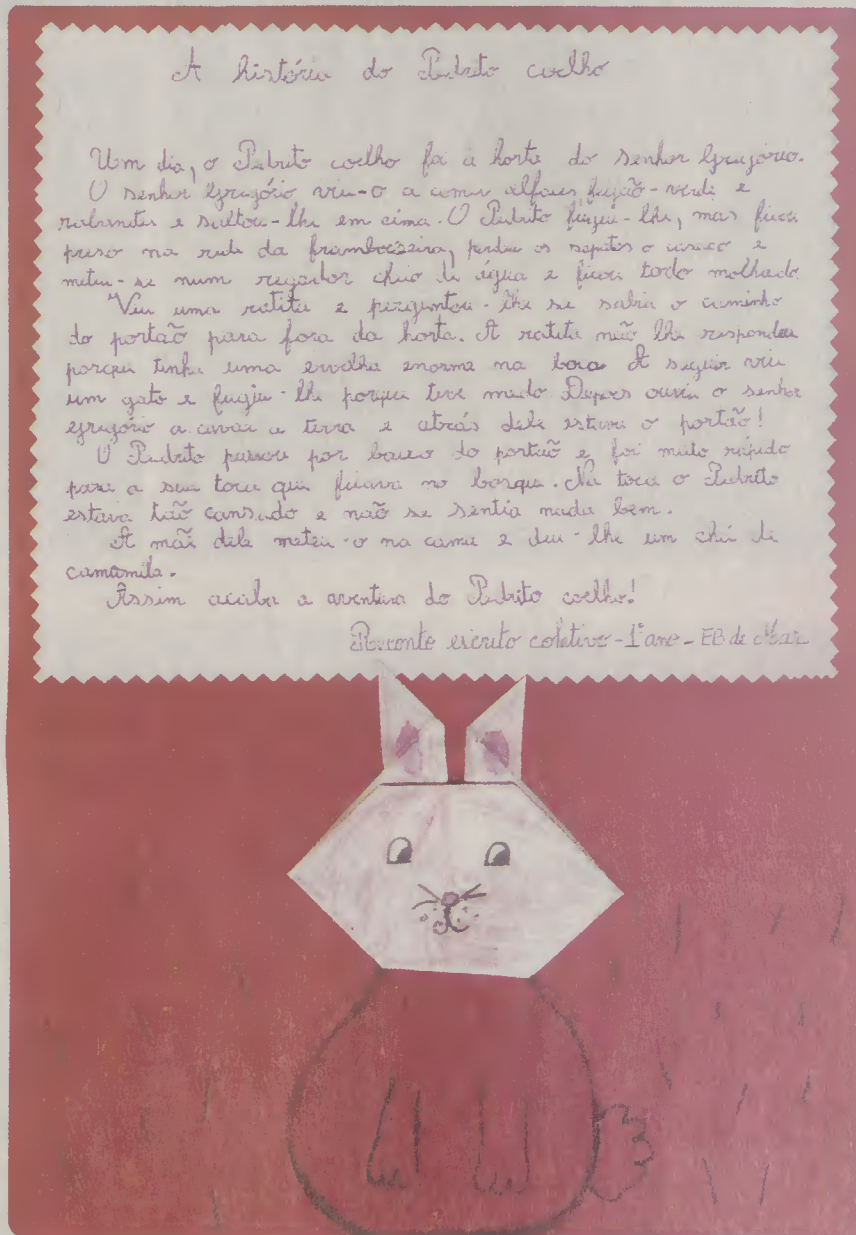 A história do Pedrito coelho
Um dia, o Pedrito coelho foi à horta do senhor Gregório.
O senhor Gregório viu-o a comer alfaces, feijão-verde e
rabanetes e saltou-lhe em cima. O Pedrito fugiu-lhe, mas ficou
preso na rede da framboezeira, perdeu os sapatos o casaco e
meteu-se num regador cheio de água e ficou todo molhado.
Viu uma ratita e perguntou-lhe se sabia o caminho
do portão para fora da horta. A ratita não lhe respondeu
porque tinha uma ervilha enorme na boca. A seguir viu
um gato e fugiu-lhe porque teve medo. Depois ouviu o senhor
Gregório a cavar a terra e atrás dele estava o portão!
O Pedrito passou por baixo do portão e foi muito rápido
para a sua toca que ficava no bosque. Na toca o Pedrito
estava tão cansado e não se sentia nada bem.
A mãe dele meteu-o na cama e deu-lhe um chá de
camomila.
Assim acaba a aventura do Pedrito coelho!
Reconto escrito coletivo - 1º ano - EB de Mar